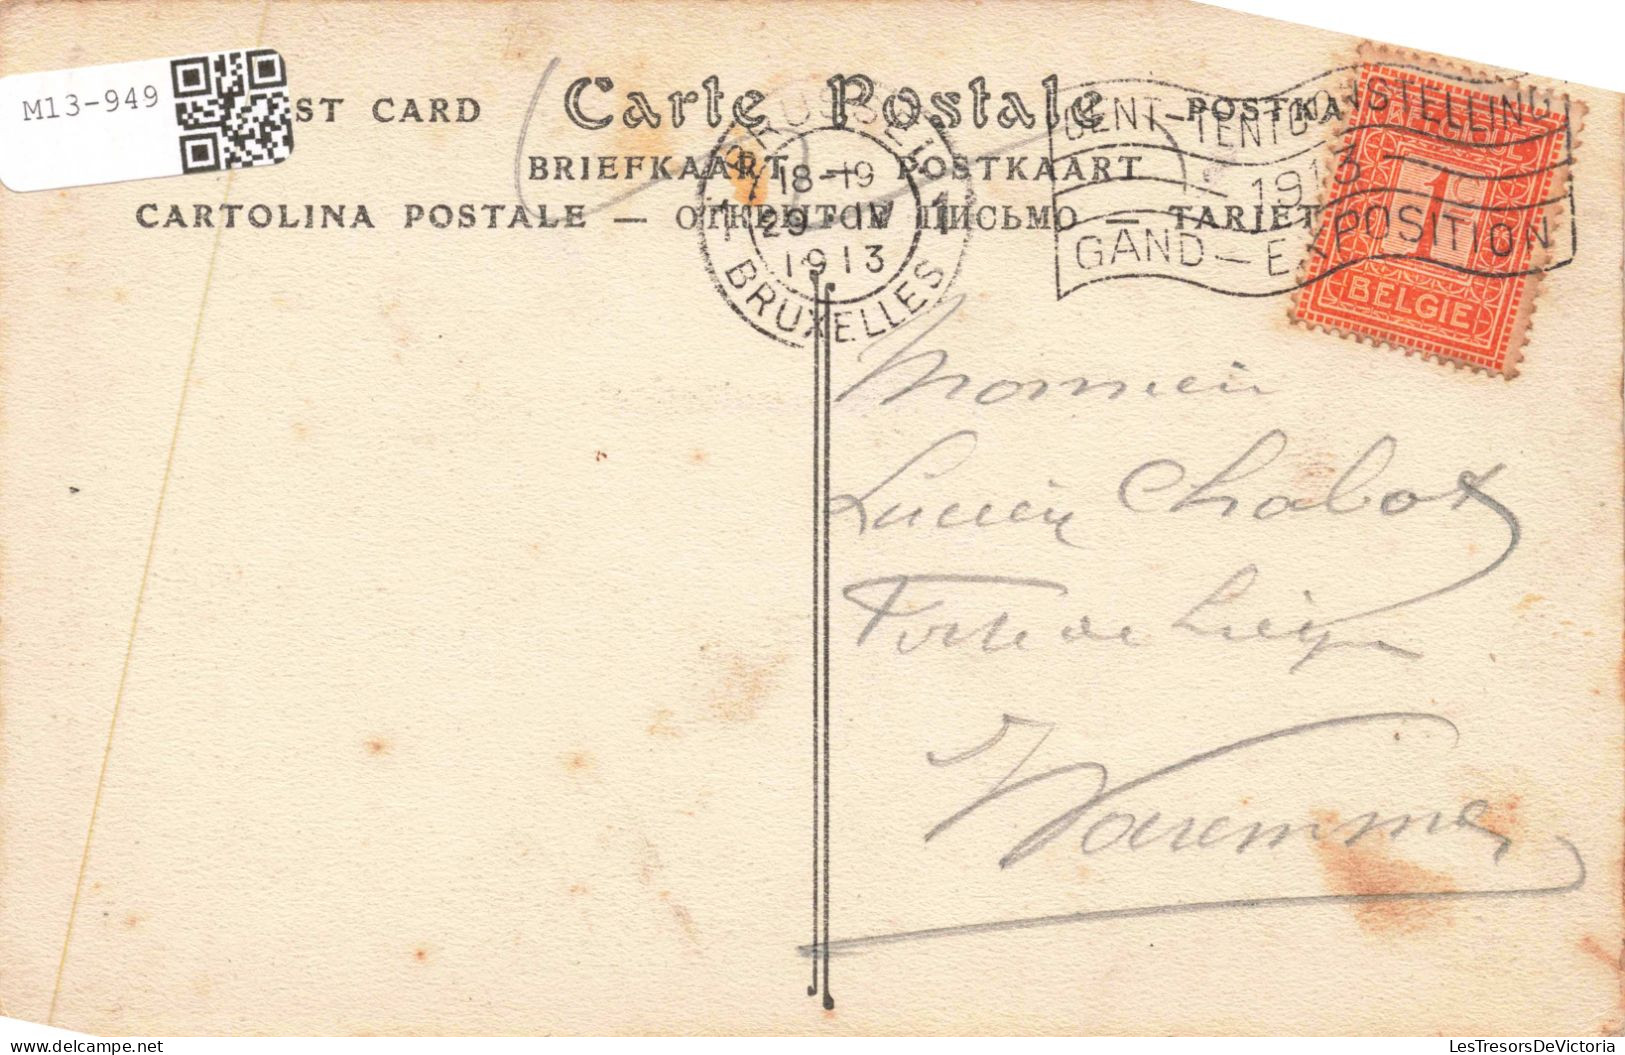 M13-949
ST CARD Carte Postale - POSTKA
BRIEFKAART — POSTKAART
CARTOLINA POSTALE — ОТКРЫТОЕ ПИСЬМО — TARJET
BRUSSEL
1 18-19 1
29 IV
1913
BRUXELLES
GENT-TENTOONSTELLING
-1913-
GAND-EXPOSITION
BELGIQUE
1C
BELGIE
Monsieur
Lucien Chabot
Porte de Liège
Waremme
LesTresorsDeVictoria